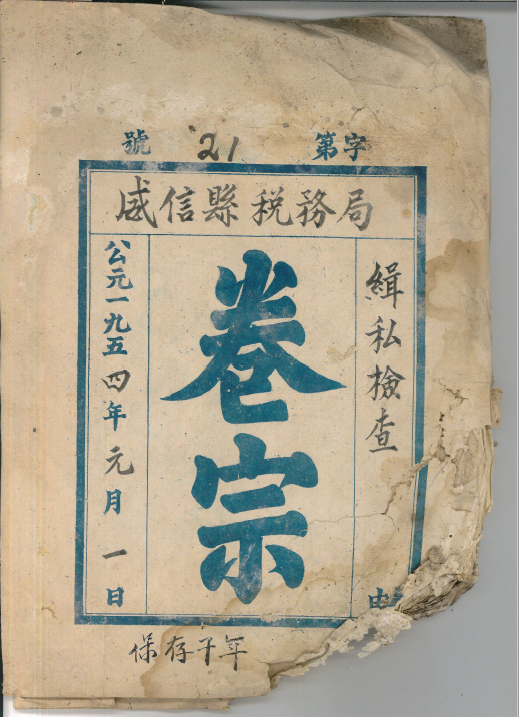 字第 21 號
威信縣税務局
緝私檢查
由
卷宗
公元一九五四年元月一日
保存年